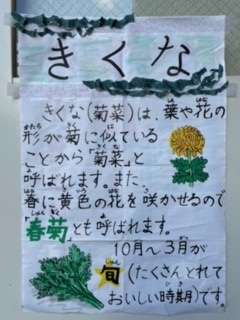 きくな
きくな(菊菜)は、葉や花の
形が菊に似ている
ことから「菊菜」と
呼ばれます。また、
春に黄色の花を咲かせるので
春菊とも呼ばれます。
10月〜3月が
旬(たくさんとれて
おいしい時期)です。